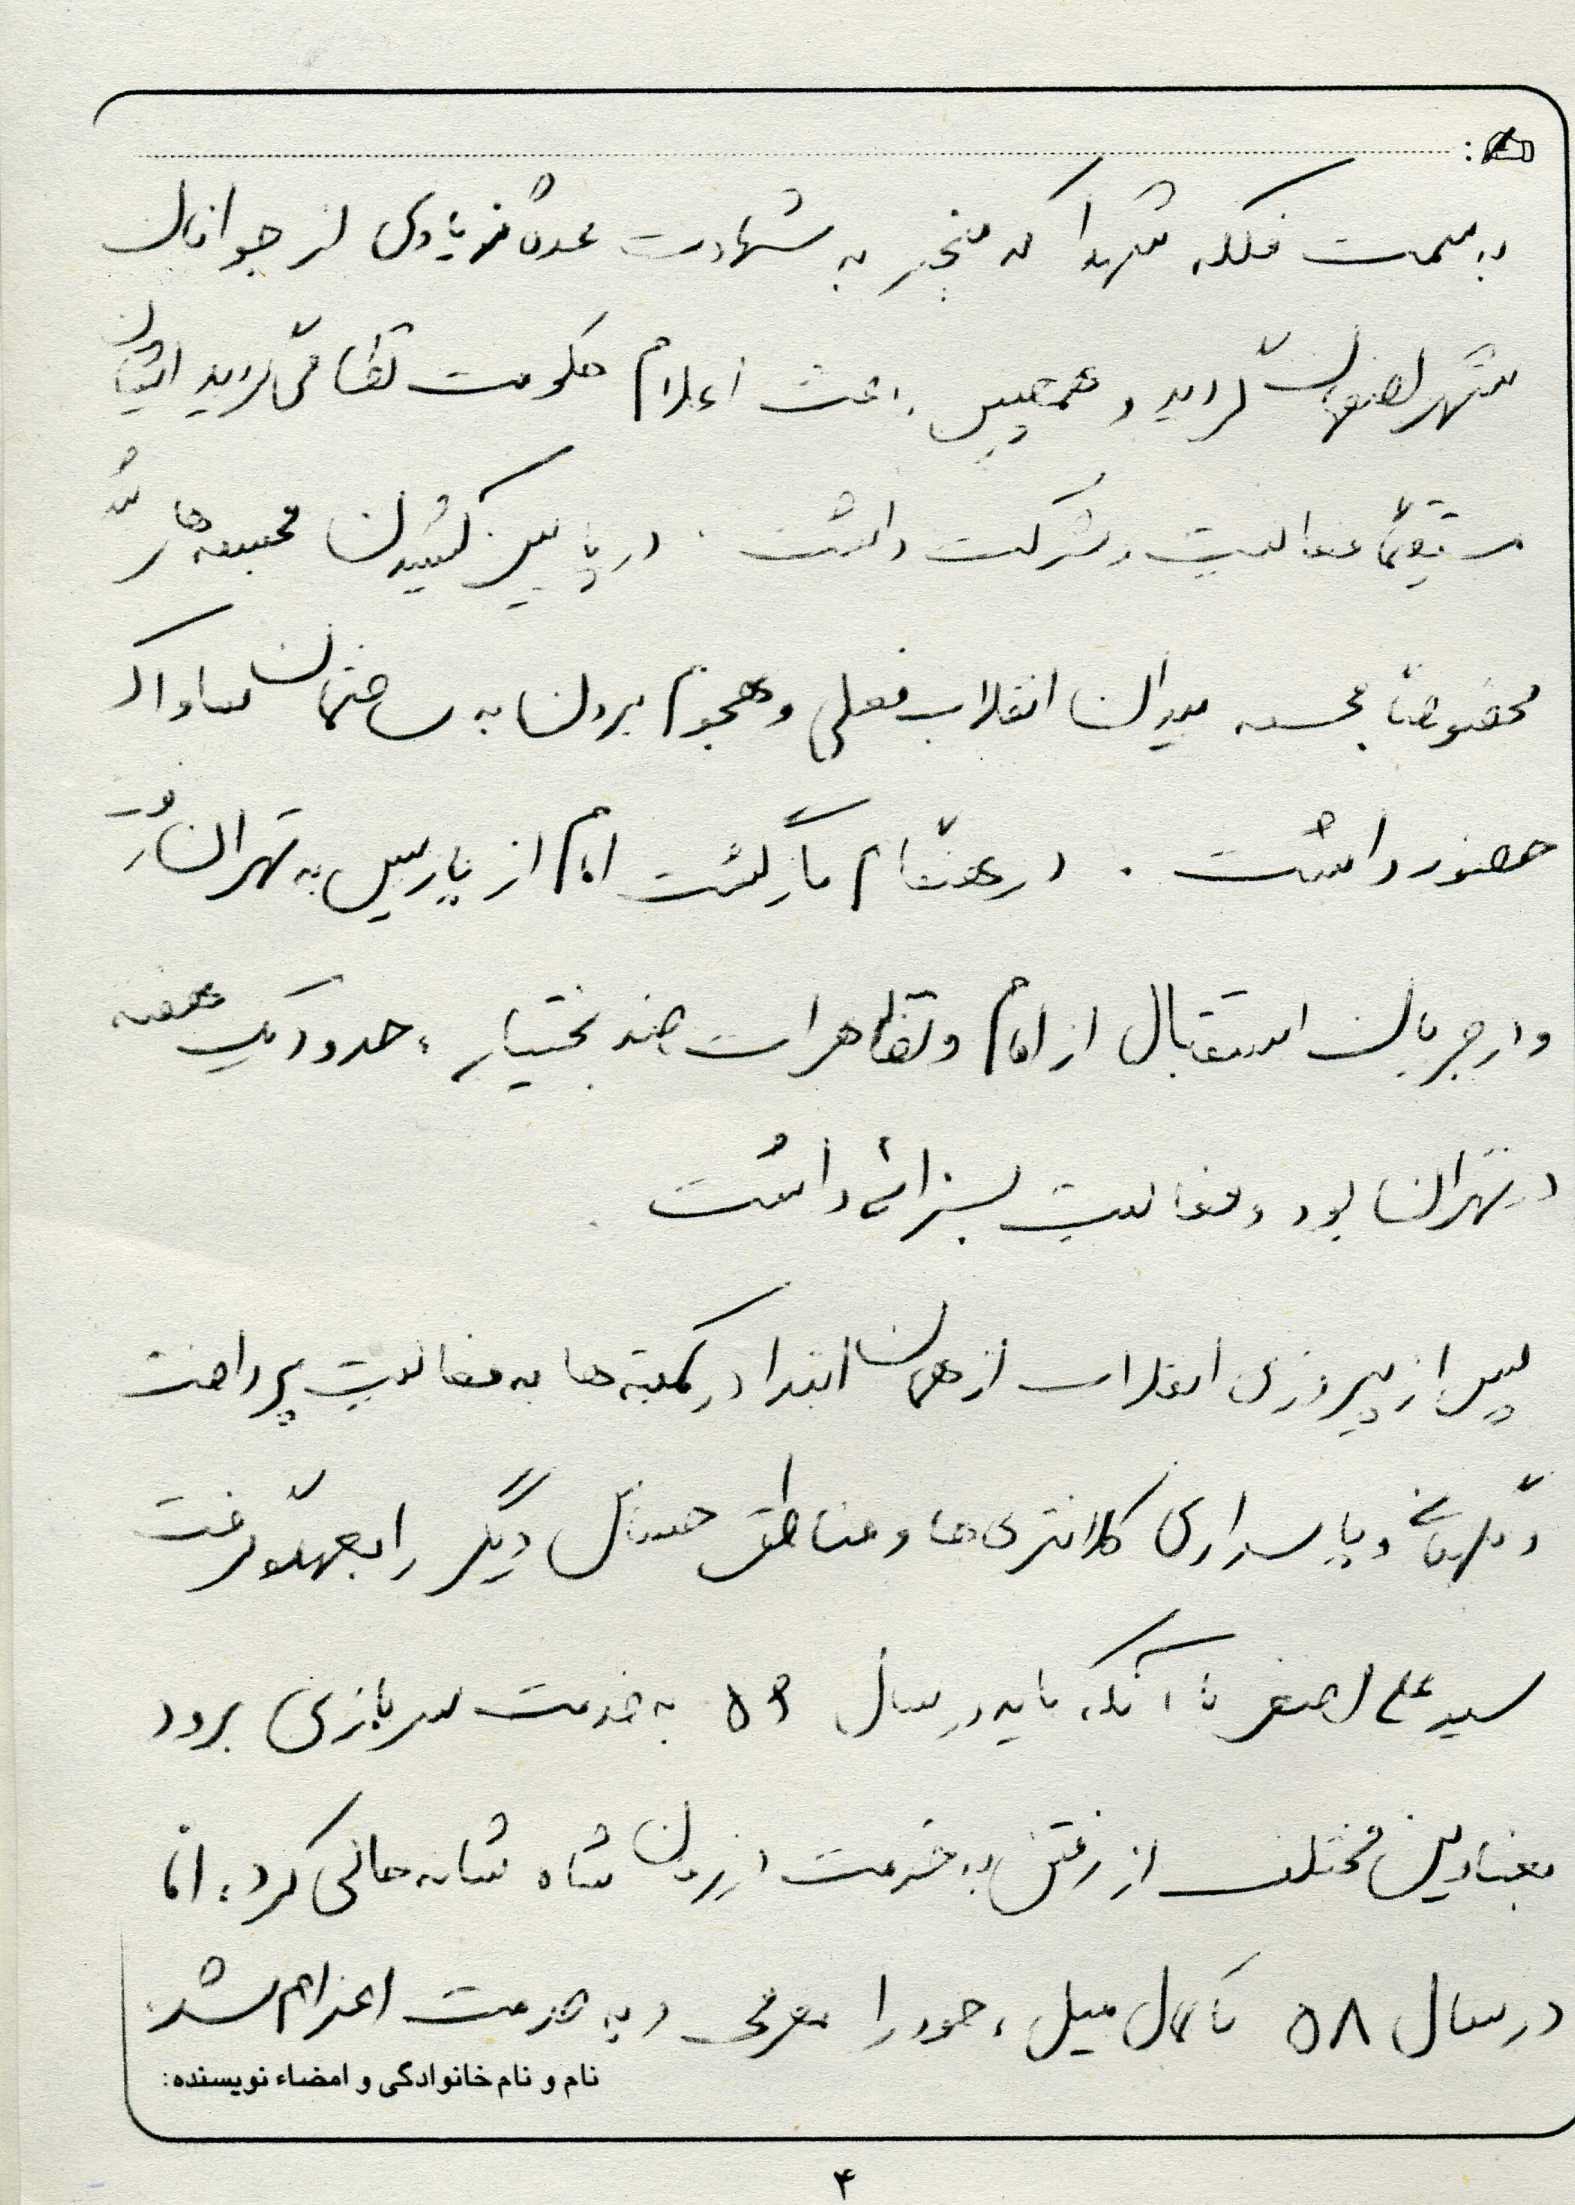 به سمت فلکه شهدا که منجر به شهادت عده زیادی از جوانان
شهر اصفهان گردید و همچنین باعث اعلام حکومت نظامی گردید ایشان
مستقیماً فعالیت و شرکت داشت. در پایین کشیدن مجسمه‌های شاه
مخصوصاً مجسمه میدان انقلاب فعلی و هجوم بردن به ساختمان ساواک
حضور داشت. در هنگام بازگشت امام از پاریس به تهران رفت
و در جریان استقبال از امام و تظاهرات ضد بختیار، حدود یک هفته
در تهران بود و فعالیت بسزائی داشت.
پس از پیروزی انقلاب از همان ابتدا در کمیته‌ها به فعالیت پرداخت
و نگهبانی و پاسداری کلانتری‌ها و مناطق حساس دیگر را بعهده گرفت
سید علی اصغر با آنکه باید در سال ۵۶ به خدمت سربازی برود
بعناوین مختلف از رفتن به خدمت در زمان شاه شانه خالی کرد، امّا
در سال ۵۸ با کمال میل، خود را معرفی و به خدمت اعزام شد.
نام و نام خانوادگی و امضاء نویسنده:
۴